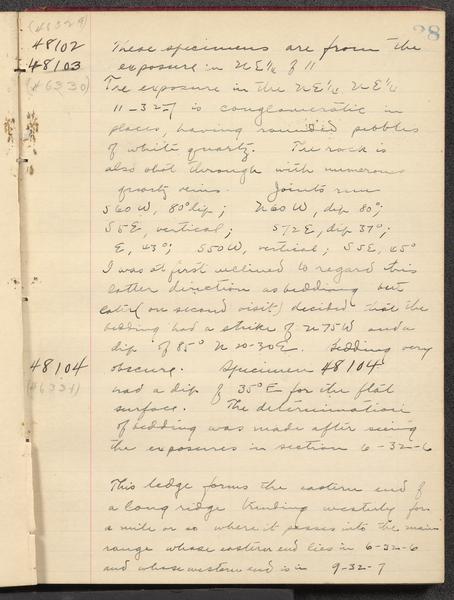 28
(46329)
48102 These specimens are from the
48103 exposure in NE 1/4 of 11
(46330) The exposure in the NE 1/4 NE 1/4
11-32-7 is conglomeratic in
places, having rounded pebbles
of white quartz. The rock is
also shot through with numerous
quartz veins. Joints run
S60W, 80° dip; N60W, dip 80°;
S5E, vertical; S72E, dip 37°;
E, 43°; S50W, vertical; S5E, 45°
I was at first inclined to regard this
latter direction as bedding but
later (on second visit) decided that the
bedding had a strike of N75W and a
dip of 85° N 20-30E. Bedding very
48104 obscure. Specimen 48104
(46331) had a dip of 35°E for the flat
surface. The determination
of bedding was made after seeing
the exposures in section 6-32-6
This ledge forms the eastern end of
a long ridge trending westerly for
a mile or so where it passes into the main
range whose eastern end lies in 6-32-6
and whose western end is in 9-32-7